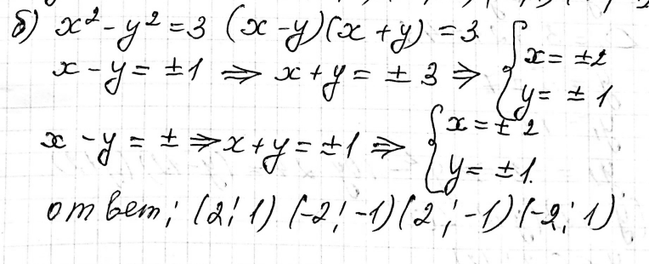 б) x² - y² = 3 (x - y)(x + y) = 3
x - y = ±1 ⇒ x + y = ±3 ⇒ { x = ±2
y = ±1
x - y = ± ⇒ x + y = ±1 ⇒ { x = ±2
y = ±1.
ответ; (2; 1) (-2; -1) (2; -1) (-2; 1)